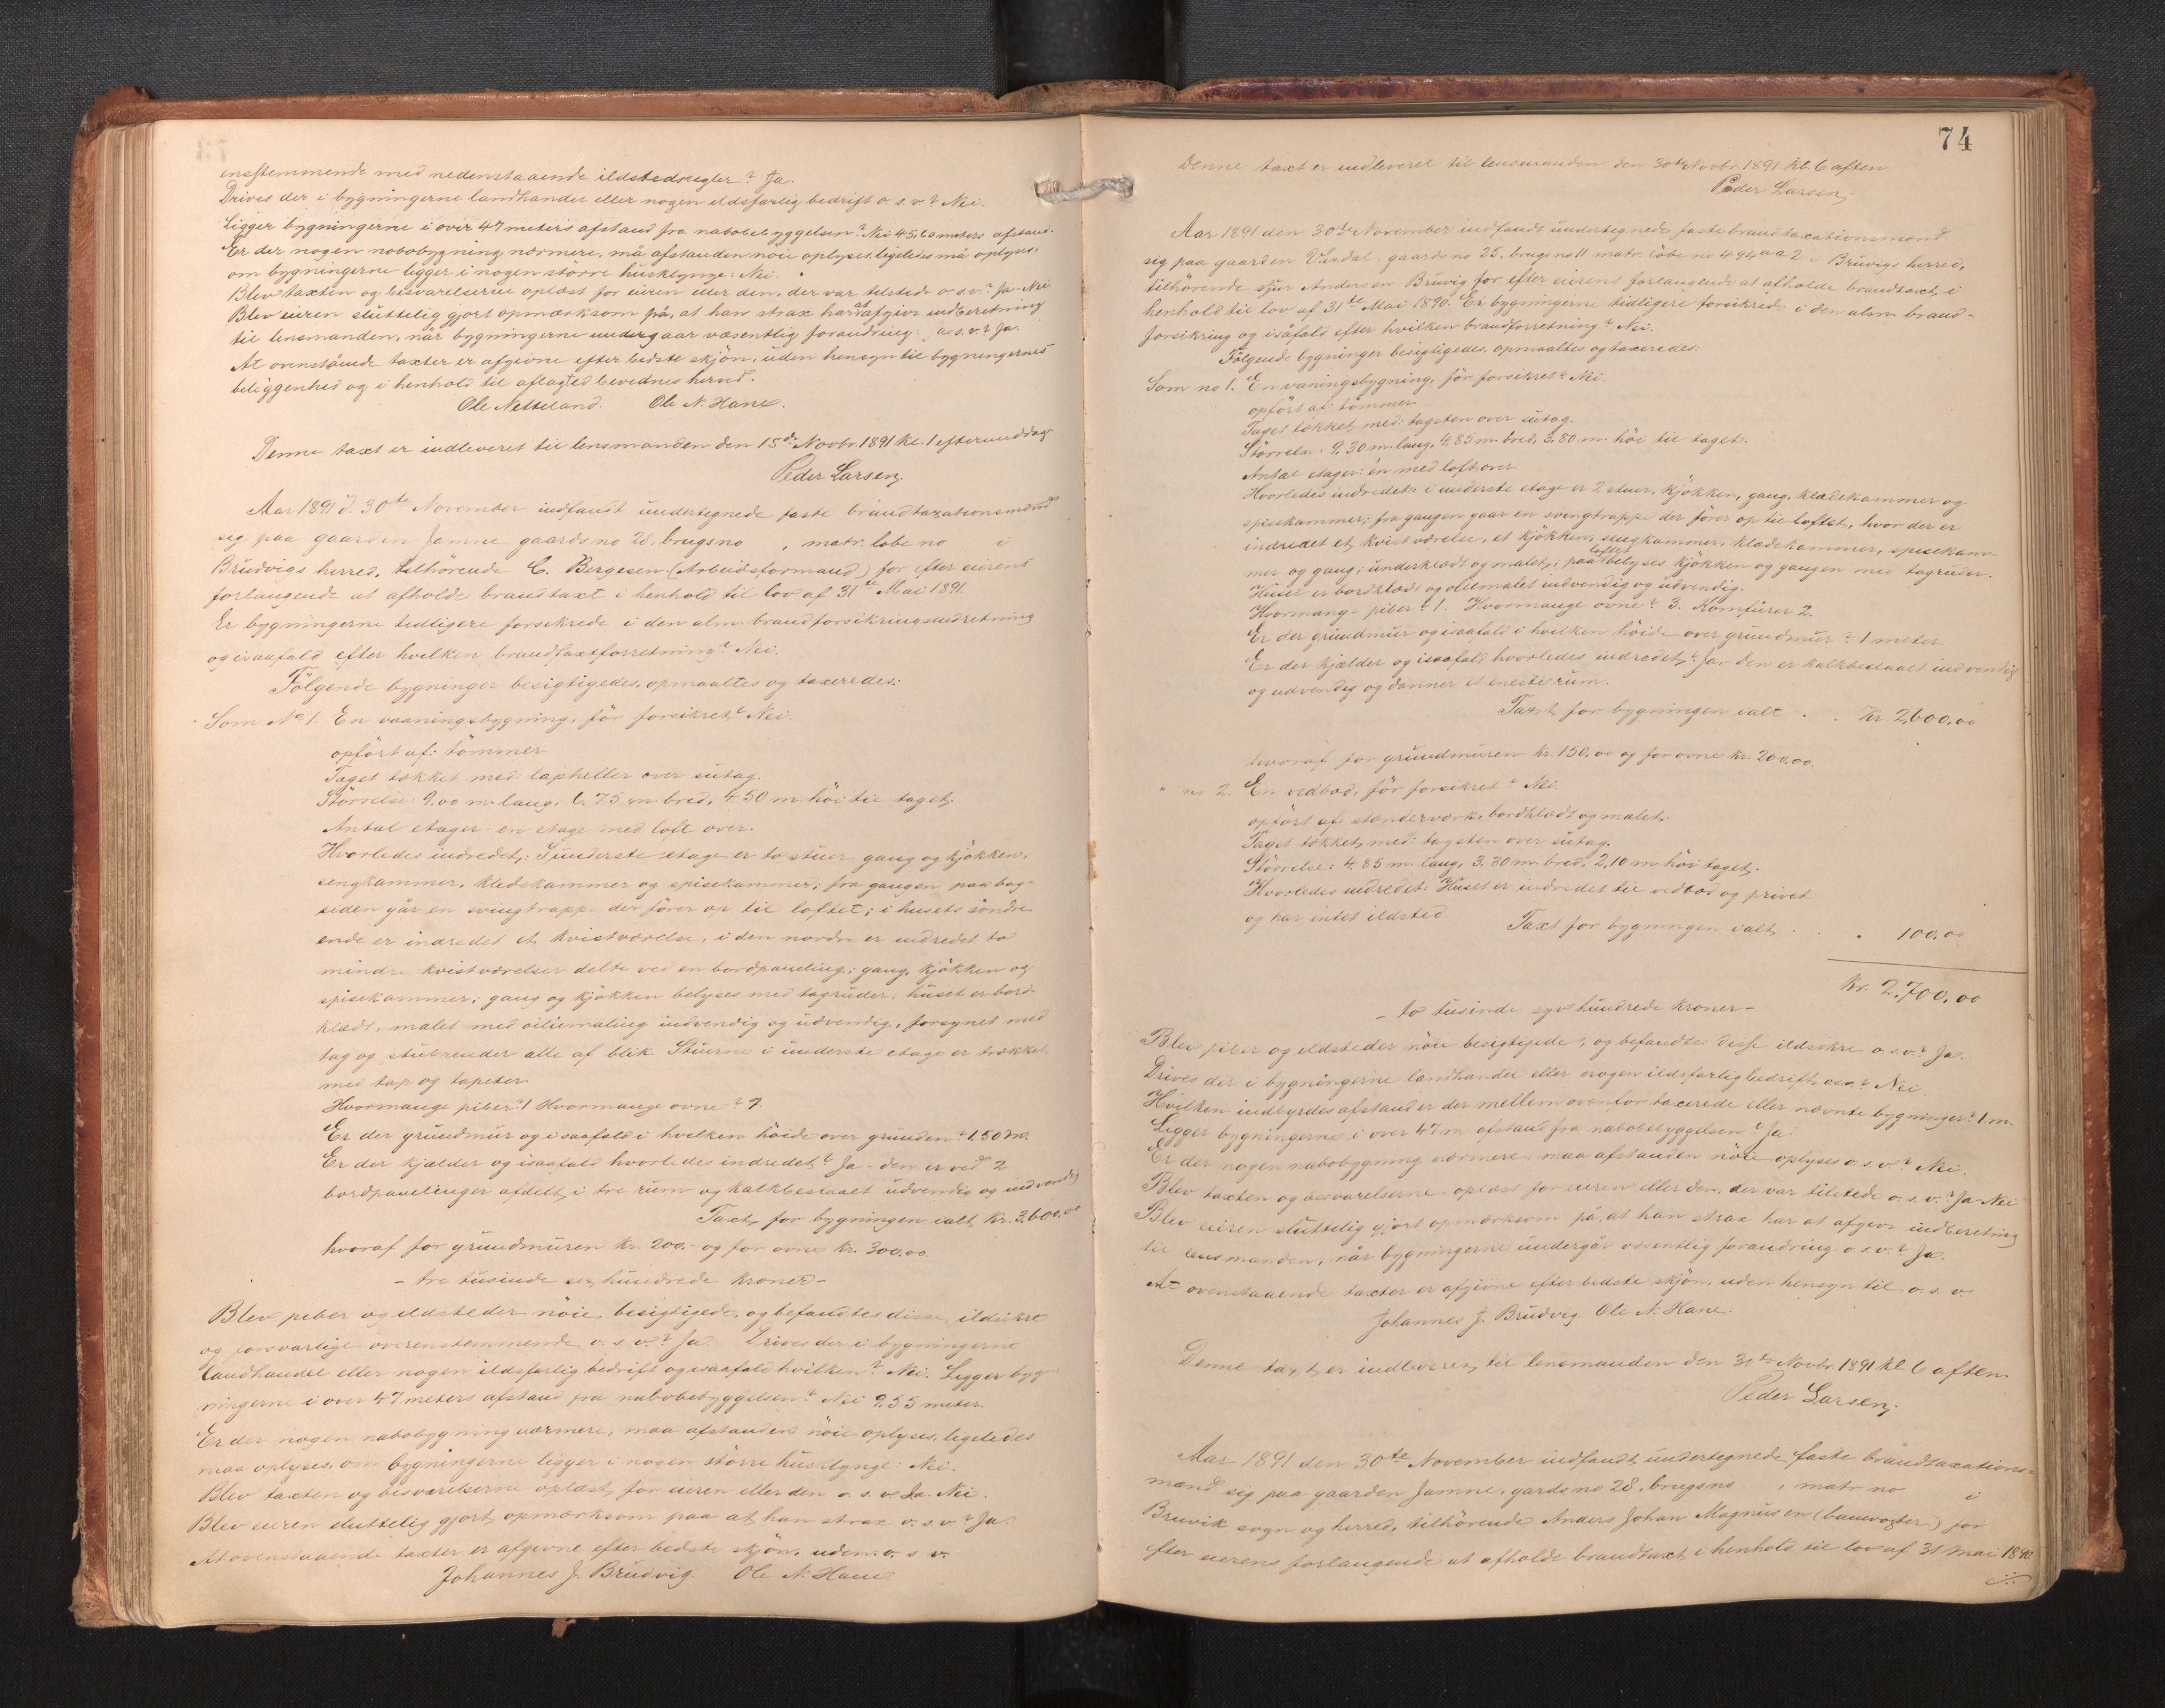 ensstemmende med nedenstaaende ildstedsregler? Ja.
Drives der i bygningerne landhandel eller nogen ildsfarlig bedrift o. s. v.? Nei.
Ligger bygningerne i over 47 meters afstand fra nabobebyggelsen? Nei 45,60 meters afstand.
Er der nogen nabobygning nærmere, må afstanden nöie oplyses, ligeledes må oplyses,
om bygningerne ligger i nogen större husklynge: Nei.
Blev taxten og besvarelserne oplæst for eieren eller den, der var tilstede o. s. v.? Ja - Nei
Blev eieren sluttelig gjort opmærksom på, at han strax har at afgive indberetning
til lensmanden, når bygningerne undergaar væsentlig forandring o. s. v.? Ja.
At ovenstående taxter er afgivne efter bedste skjön, uden hensyn til bygningernes
beliggenhed og i henhold til aflagt ed bevidnes herved.
Ole Netteland. Ole N. Hane.
Denne taxt er indleveret til lensmanden den 15de Novbr. 1891 kl. 1 eftermiddag
Peder Larsen.
Aar 1891 d. 30te November indfandt undertegnede faste brandtaxationsmænd
sig paa gaarden Jamne gaards no 28, brugsno , matr. löbe no i
Brudvigs herred, tilhörende C. Bergesen (Arbeidsformand) for efter eierens
forlangende at afholde brandtaxt i henhold til lov af 31te Mai 1891.
Er bygningerne tidligere forsikrede i den alm. brandforsikringsindretning
og isaafald efter hvilken brandtaxtforretning? Nei.
Fölgende bygninger besigtigedes, opmaaltes og taxeredes:
Som No 1. En vaaningsbygning, för forsikret? Nei.
opfört af: tömmer
Taget tækket med: lapheller over sutag.
Störrelse: 9.00 m. lang, 6.75 m. bred, 4.50 m. höi til taget.
Antal etager: en etage med loft over.
Hvorledes indredet: I underste etage er to stuer, gang og kjökken,
sengkammer, klædekammer og spisekammer; fra gangen paa bag-
siden går en svingtrappe der förer op til loftet; i husets söndre
ende er indredet et kvistværelse, i den nordre er indredet to
mindre kvistværelser delte ved en bordpaneling; gang, kjökken og
spisekammer; gang og kjökken belyses med tagruder; huset er bord-
klædt, malet med oliemaling indvendig og udvendig, forsynet med
tag og stubrender alle af blik. Stuerne i underste etage er trækket
med tap og tapeter.
Hvormange piber? 1 Hvormange ovne? 7.
Er der grundmur og isaafald i hvilken höide over grunden? 1.50 m.
Er der kjælder og isaafald hvorledes indredet? Ja - den er ved 2
bordpanelinger afdelt i tre rum og kalkbeslaaet udvendig og indvendig
Taxt for bygningen ialt Kr. 3.600.00
hvoraf for grundmuren Kr. 200.- og for ovne Kr. 300.00.
- tre tusinde sex hundrede kroner -
Blev piber og ildsteder nöie besigtigede, og befandtes disse ildsikre
og forsvarlige overenstemmende o. s. v.? Ja. Drives der i bygningerne
landhandel eller nogen ildsfarlig bedrift og isaafald hvilken? Nei. Ligger byg-
ningerne i over 47 meters afstand fra nabobebyggelsen? Nei 9.55 meter.
Er der nogen nabobygning nærmere, maa afstanden nöie oplyses, ligeledes
maa oplyses, om bygningerne ligger i nogen större husklynge: Nei.
Blev taxten og besvarelserne oplæst for eieren eller den o. s. v. Ja. Nei.
Blev eieren sluttelig gjort opmærksom paa at han strax o. s. v? Ja.
At ovenstaaende taxter er afgivne efter bedste skjön, uden o. s. v.
Johannes J. Brudvig. Ole N. Hane
74
Denne taxt er indleveret til lensmanden den 30te Novbr. 1891 kl. 6 aften.
Peder Larsen.
Aar 1891 den 30te November indfandt undertegnede faste brandtaxationsmænd
sig paa gaarden Vardal gaards no 25, brugs no 11 matr. löbe no 494 aa 2 i Bruvigs herred,
tilhörende Sjur Andersen Bruvig for efter eierens forlangende at afholde brandtaxt i
henhold til lov af 31te Mai 1890. Er bygningerne tidligere forsikrede i den alm. brand-
forsikring og isåfald efter hvilken brandforretning? Nei.
Fölgende bygninger besigtigedes, opmaaltes og taxeredes:
Som no 1. En vaningsbygning, för forsikret? Nei.
opfört af: tömmer.
Taget tækket med: tagsten over sutag.
Störrelse: 9,30 m. lang, 4.85 m. bred, 3.80 m. höi til taget.
Antal etager: én med loft over.
Hvorledes indredet: i underste etage er 2 stuer, kjökken, gang, klædekammer og
spisekammer; fra gangen gaar en svingtrappe der förer op til loftet, hvor der er
indredet et kvistværelse, et kjökken, sengkammer, klædekammer, spisekam-
mer og gang; underklædt og malet; paa loftet belyses kjökken og gangen med tagruder.
Huset er bordklædt og oliemalet indvendig og udvendig.
Hvormange piber? 1. Hvormange ovne? 3. Komfurer 2.
Er der grundmur og isaafald i hvilken höide over grundmur? 1 meter
Er der kjælder og isaafald hvorledes indredet? Ja, den er kalkbeslaaet indvendig
og udvendig og danner et eneste rum.
Taxt for bygningen ialt . . Kr. 2,600,00
hvoraf for grundmuren Kr. 150.00 og for ovne Kr. 200.00.
" no 2. En vedbod, för forsikret? Nei.
opfört af: stænderværk, bordklædt og malet.
Taget tækket med: tagsten over sutag.
Störrelse: 4.85 m. lang, 3.30 m. bred, 2,10 m. höi taget.
Hvorledes indredet: Huset er indredet til vedbod og privet
og har intet ildsted.
Taxt for bygningen ialt . . " 100.00
Kr. 2.700.00
- to tusinde syv hundrede kroner -
Blev piber og ildsteder nöie besigtigede, og befandtes disse ildsikre o. s. v.? Ja.
Drives der i bygningerne landhandel eller nogen ildsfarlig bedrift o.s.v.? Nei.
Hvilken indbyrdes afstand er der mellem ovenfor taxerede eller nævnte bygninger? 1 m.
Ligger bygningerne i over 47 m. afstand fra nabobebyggelsen? Ja.
Er der nogen nabobygning nærmere, maa afstanden nöie oplyses o. s. v.? Nei.
Blev taxten og besvarelserne oplæst for eieren eller den, der var tilstede o. s. v.? Ja - Nei
Blev eieren sluttelig gjort opmærksom på, at han strax har at afgive indberetning
til lensmanden, når bygningerne undergår væsentlig forandring o. s. v.? Ja.
At ovenstaaende taxter er afgivne efter bedste skjön, uden hensyn til o. s. v.
Johannes J. Brudvig. Ole N. Hane.
Denne taxt er indleveret til lensmanden den 30te Novbr. 1891 kl 6 aften.
Peder Larsen.
Aar 1891 den 30te November indfandt undertegnede faste brandtaxations-
mænd sig paa gaarden Jamne, gards no 28, brugsno , matr no i
Bruvik sogn og herred, tilhörende Anders Johan Magnusen (banevogter) for
efter eierens forlangende at afholde brandtaxt i henhold til lov af 31 Mai 1890